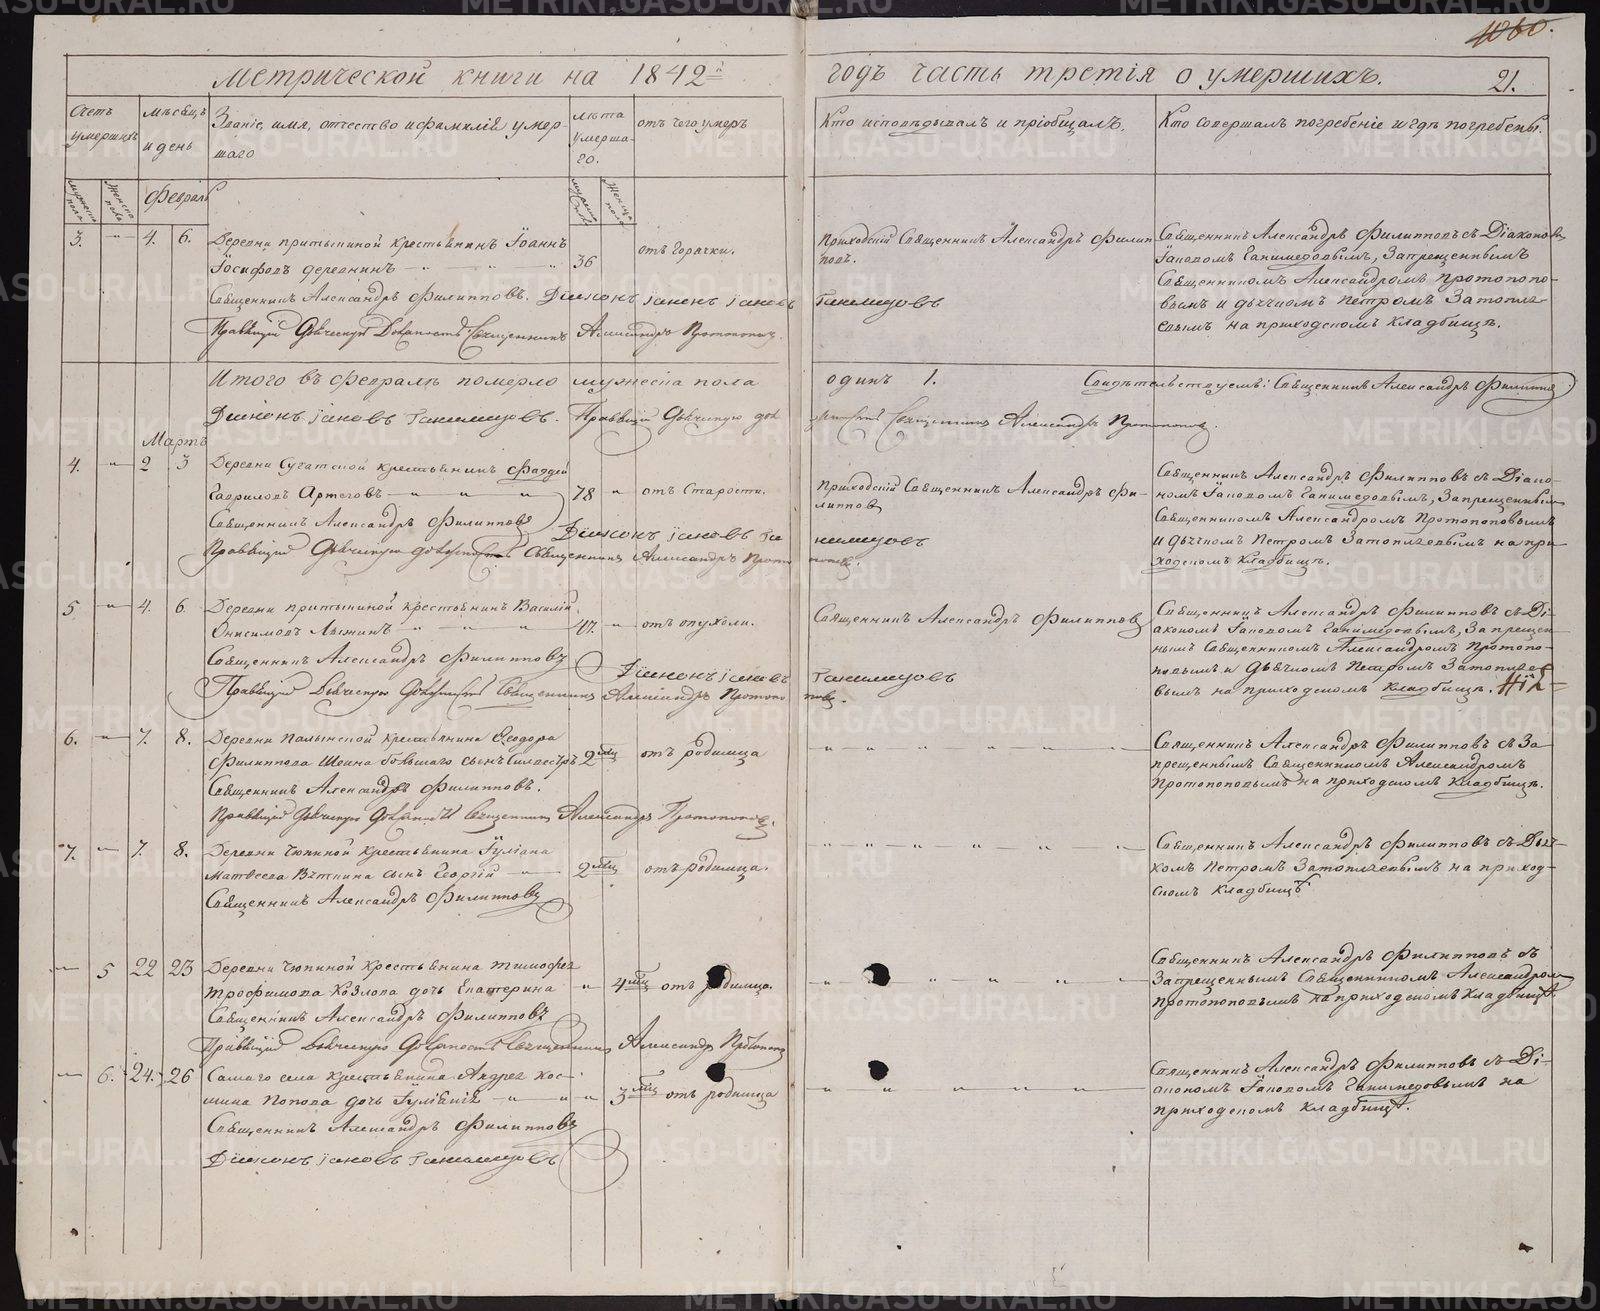 1060.
Метрической книги на 1842й годъ часть третія о умершихъ. 21.
Счетъ умершихъ
мѣсяцъ и день
Званіе, имя, отчество и фамилія умер-
шаго
лѣта умерша-
го.
отъ чего умеръ
Кто исповѣдывалъ и пріобщалъ.
Кто совершалъ погребеніе и гдѣ погребены.
мужеска пола
женска пола
Февраль
мужеска пола
женска пола
3. — 4. 6. Деревни притыкиной крестьянинъ Іоаннъ
Іосифовъ деревнинъ 36 отъ горячки.
Священникъ Александръ Филипповъ. Діаконъ Іаковъ
Ганимедовъ
Правящій Дьяческую должность Священникъ Александръ Протопоповъ.
Приходскій Священникъ Александръ Филип-
повъ.
Священникъ Александръ Филипповъ съ Діакономъ
Іаковомъ Ганимедовымъ, Запрещеннымъ
Священникомъ Александромъ Протопопо-
вымъ и дьячкомъ Петромъ Затопляе-
вымъ на приходскомъ кладбищѣ.
Итого въ Февралѣ померло мужеска пола одинъ 1. Свидѣтельствуемъ: Священникъ Александръ Филипповъ
Діаконъ Іаковъ Ганимедовъ. Правящій Дьяческую должность Священникъ Александръ Протопоповъ.
Мартъ
4. — 2 3 Деревни Сугатской крестьянинъ Фаддей
Гавриловъ Артеговъ 78 отъ старости.
Священникъ Александръ Филипповъ Діаконъ Іаковъ Га
нимедовъ
Правящій Дьяческую должность Священникъ Александръ Протопоповъ.
Приходскій Священникъ Александръ Фи-
липповъ
Священникъ Александръ Филипповъ съ Діако-
номъ Іаковомъ Ганимедовымъ, Запрещеннымъ
Священникомъ Александромъ Протопоповымъ
и дьячкомъ Петромъ Затопляевымъ на при-
ходскомъ кладбищѣ.
5 — 4. 6 Деревни притыкиной крестьянинъ Василій
Онисимовъ Лыжинъ 47. отъ опухоли.
Священникъ Александръ Филипповъ Діаконъ Іаковъ
Ганимедовъ
Правящій Дьяческую должность Священникъ Александръ Протопоповъ.
Священникъ Александръ Филипповъ
Священникъ Александръ Филипповъ съ Ді-
акономъ Іаковомъ Ганимедовымъ, Запрещен-
нымъ Священникомъ Александромъ Протопо-
повымъ и дьячкомъ Петромъ Затопляе-
вымъ на приходскомъ кладбищѣ.
6. — 7. 8. Деревни крестьянина Ѳеодора
Филиппова Шеина большаго сынъ Силвестръ 2 мц отъ родимца
Священникъ Александръ Филипповъ.
Правящій Дьяческую должность Священникъ Александръ Протопоповъ.
Священникъ Александръ Филипповъ съ За
прещеннымъ Священникомъ Александромъ
Протопоповымъ на приходскомъ кладбищѣ.
7. — 7. 8. Деревни Чюпиной крестьянина Іуліана
Матвеева Вяткина сынъ Георгій 2 мц отъ родимца.
Священникъ Александръ Филипповъ
Священникъ Александръ Филипповъ съ Дьяч-
комъ Петромъ Затопляевымъ на приход-
скомъ кладбищѣ.
— 5 22 23 Деревни Чюпиной крестьянина Тимофея
Трофимова Козлова дочь Екатерина 4 мц отъ родимца.
Священникъ Александръ Филипповъ
Правящій Дьяческую должность Священникъ Александръ Протопоповъ
Священникъ Александръ Филипповъ съ
Запрещеннымъ Священникомъ Александромъ
Протопоповымъ на приходскомъ кладбищѣ.
— 6. 24. 26 Самаго села крестьянина Андрея Кос-
мина Попова дочь Іуліанія 3 мц отъ родимца
Священникъ Александръ Филипповъ
Діаконъ Іаковъ Ганимедовъ
Священникъ Александръ Филипповъ съ Ді-
акономъ Іаковомъ Ганимедовымъ на
приходскомъ кладбищѣ.
METRIKI.GASO-URAL.RU